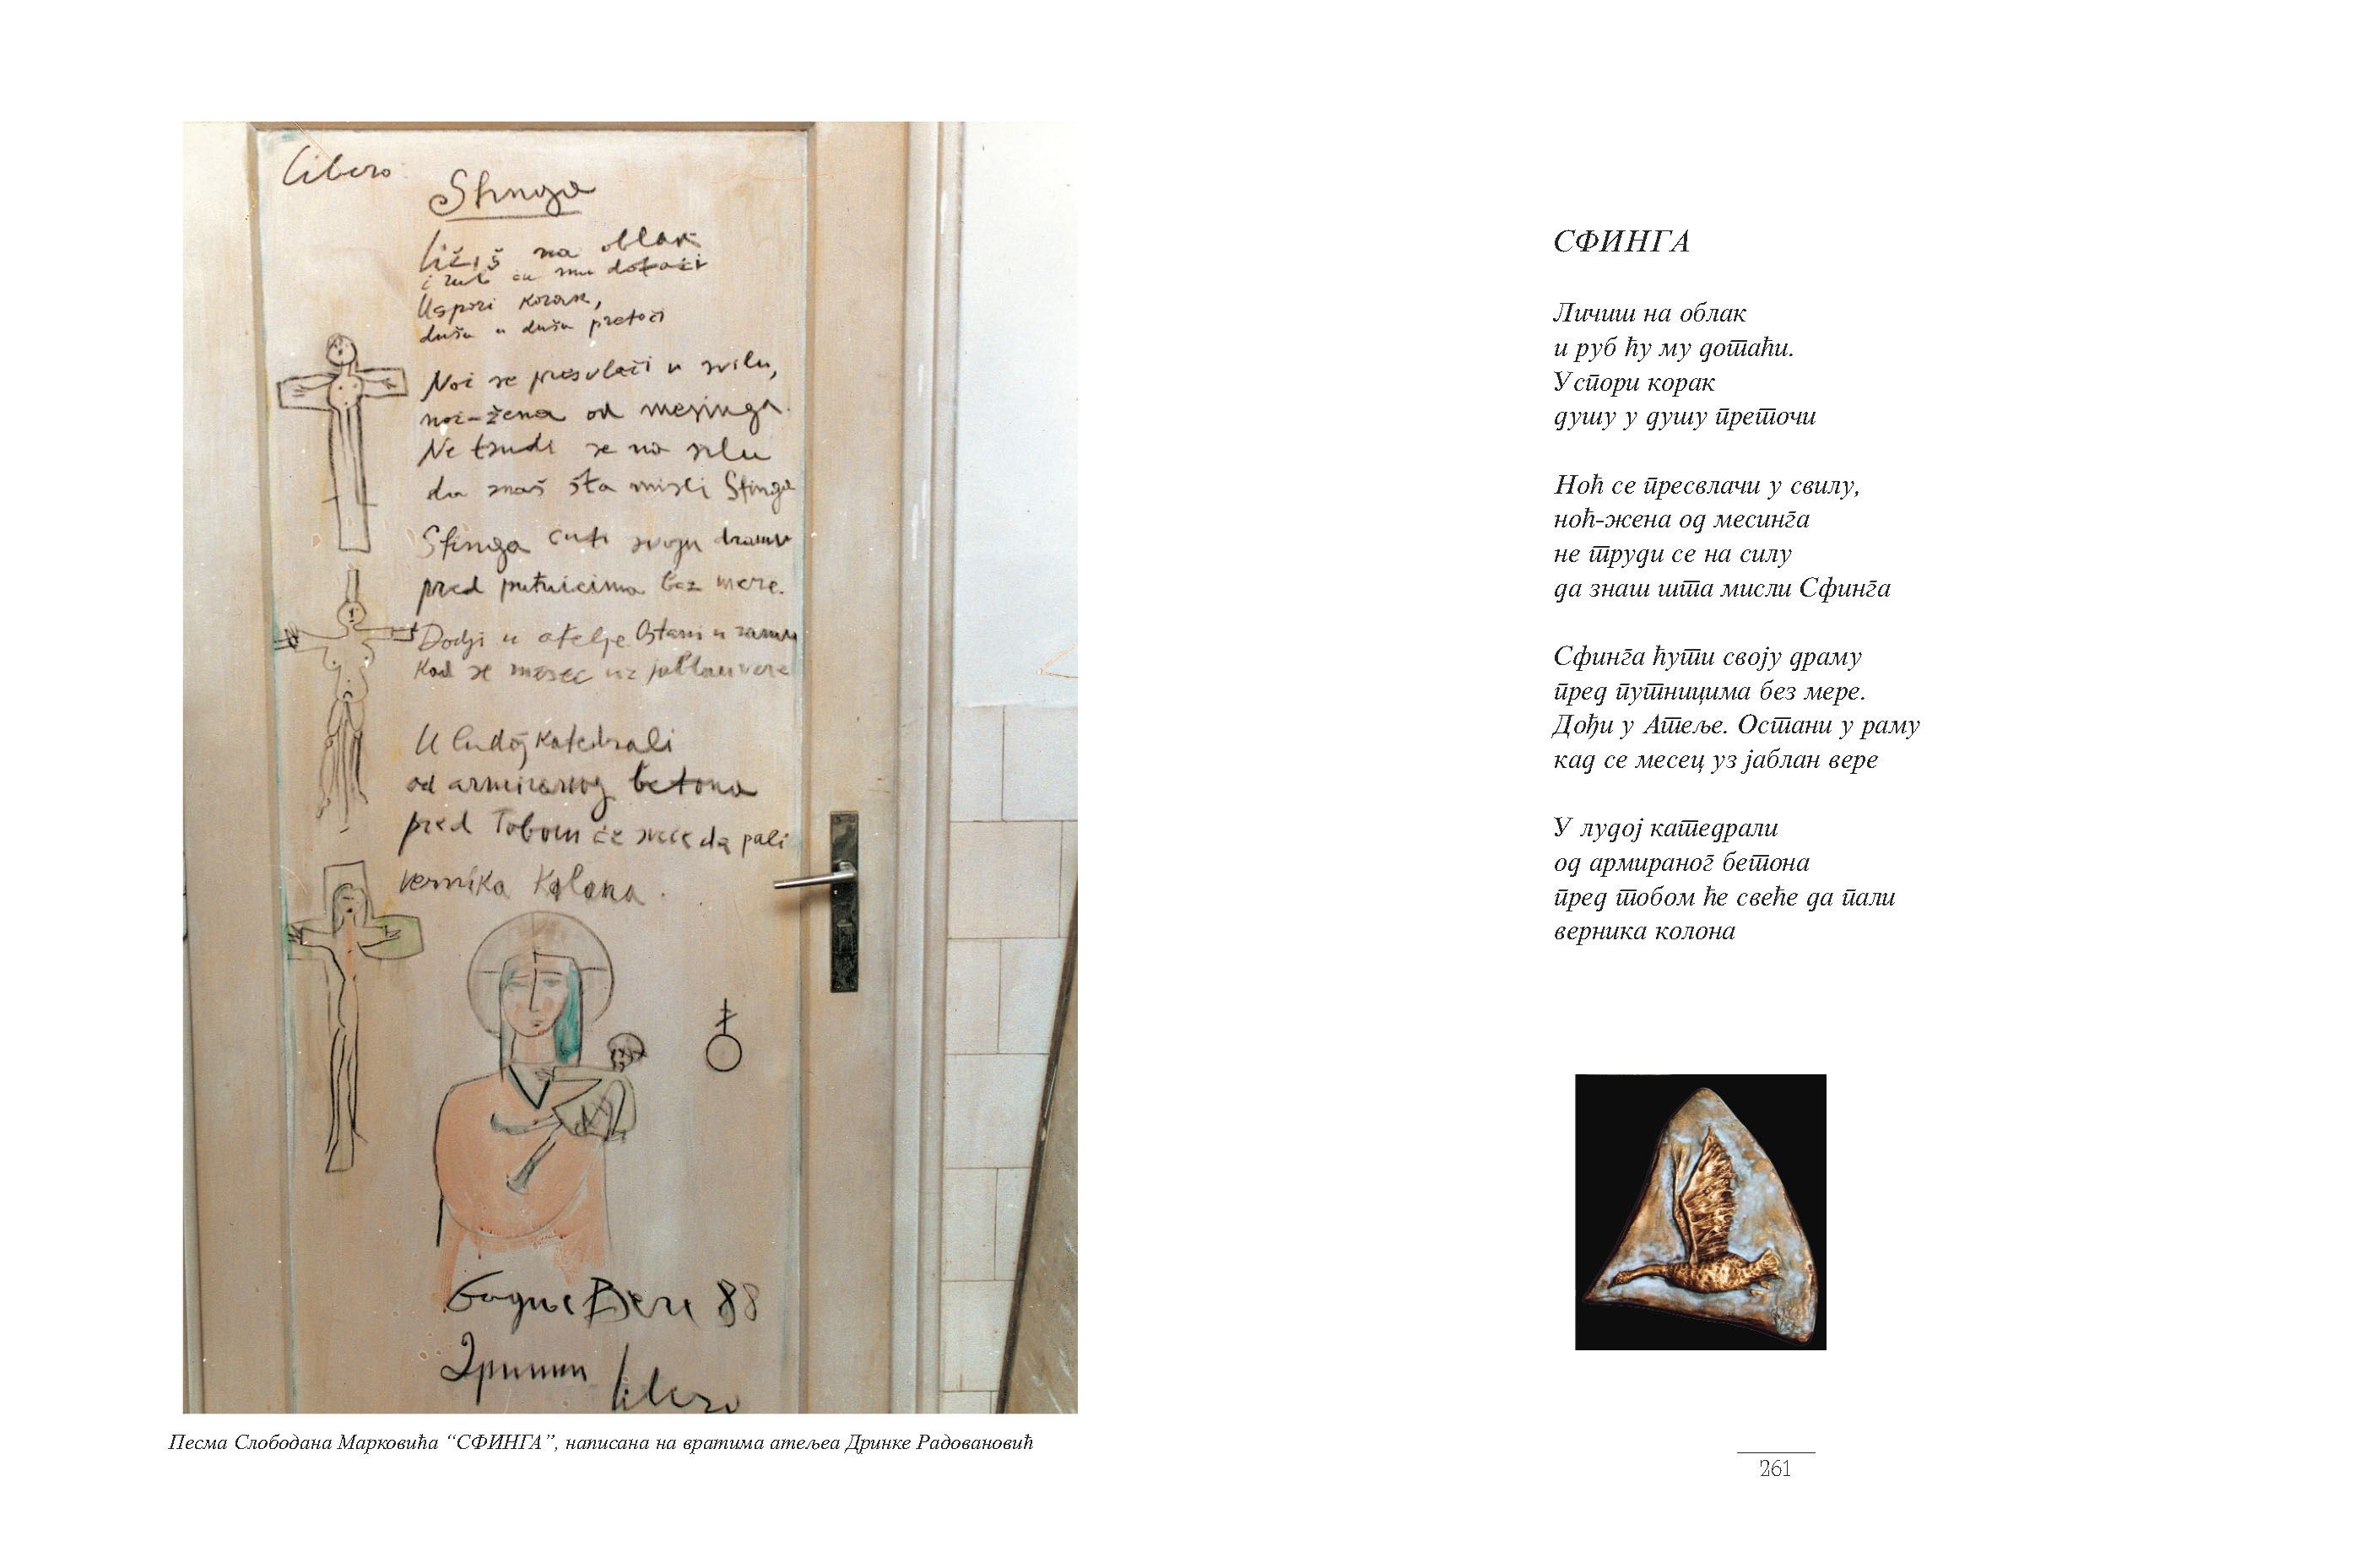 Libero
Sfinga
ličiš na oblak
i rub ću mu dotaći
Uspori korak,
dušu u dušu pretoči
Noć se presvlači u svilu,
noć-žena od mesinga.
Ne trudi se na silu
da znaš šta misli Sfinga
Sfinga ćuti svoju dramu
pred putnicima bez mere.
Dodji u atelje. Ostani u ramu
kad se mesec uz jablan vere
U ludoj katedrali
od armiranog betona
pred Tobom će sveće da pali
vernika kolona.
88
Libero
Песма Слободана Марковића “СФИНГА”, написана на вратима атељеа Дринке Радовановић
СФИНГА
Личиш на облак
и руб ћу му дотаћи.
Успори корак
душу у душу преточи
Ноћ се пресвлачи у свилу,
ноћ-жена од месинга
не труди се на силу
да знаш шта мисли Сфинга
Сфинга ћути своју драму
пред путницима без мере.
Дођи у Атеље. Остани у раму
кад се месец уз јаблан вере
У лудој катедрали
од армираног бетона
пред тобом ће свеће да пали
верника колона
261